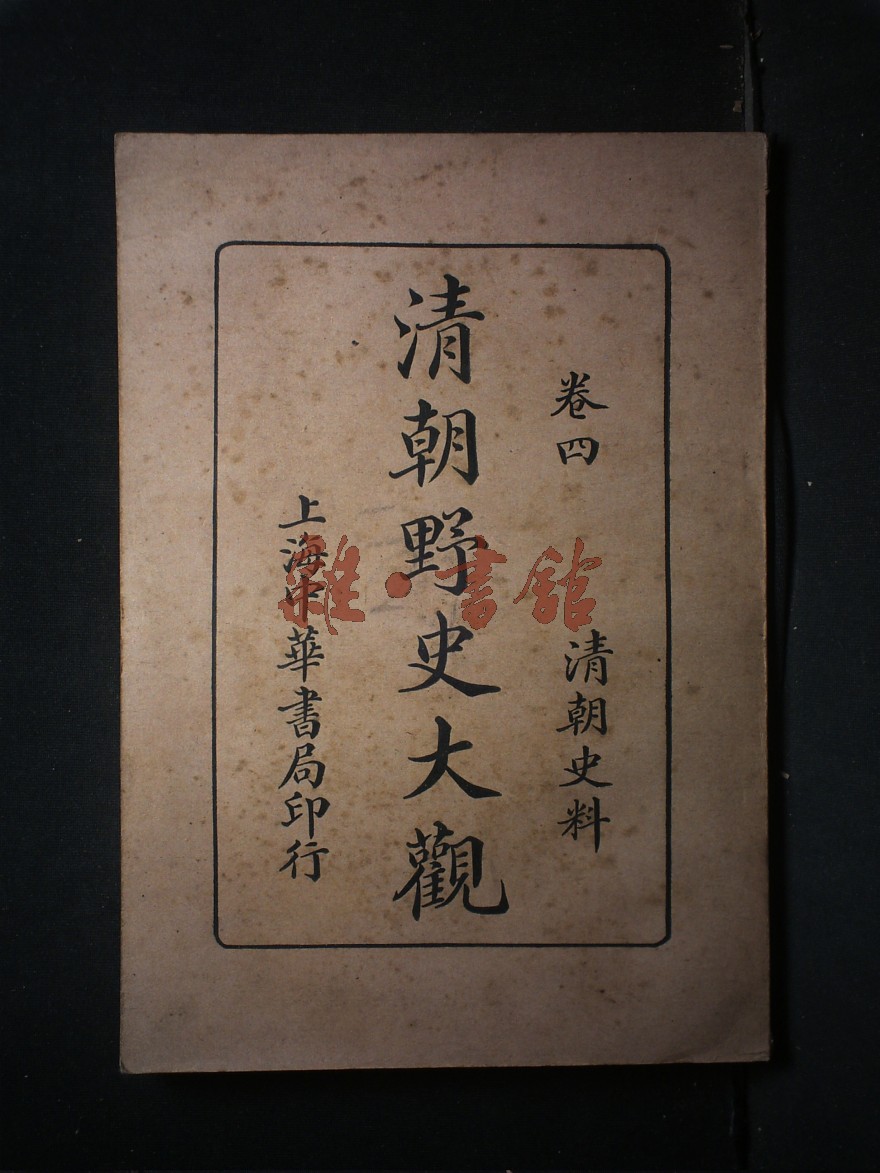 卷四 清朝史料
清朝野史大觀
上海中華書局印行
雜·書館